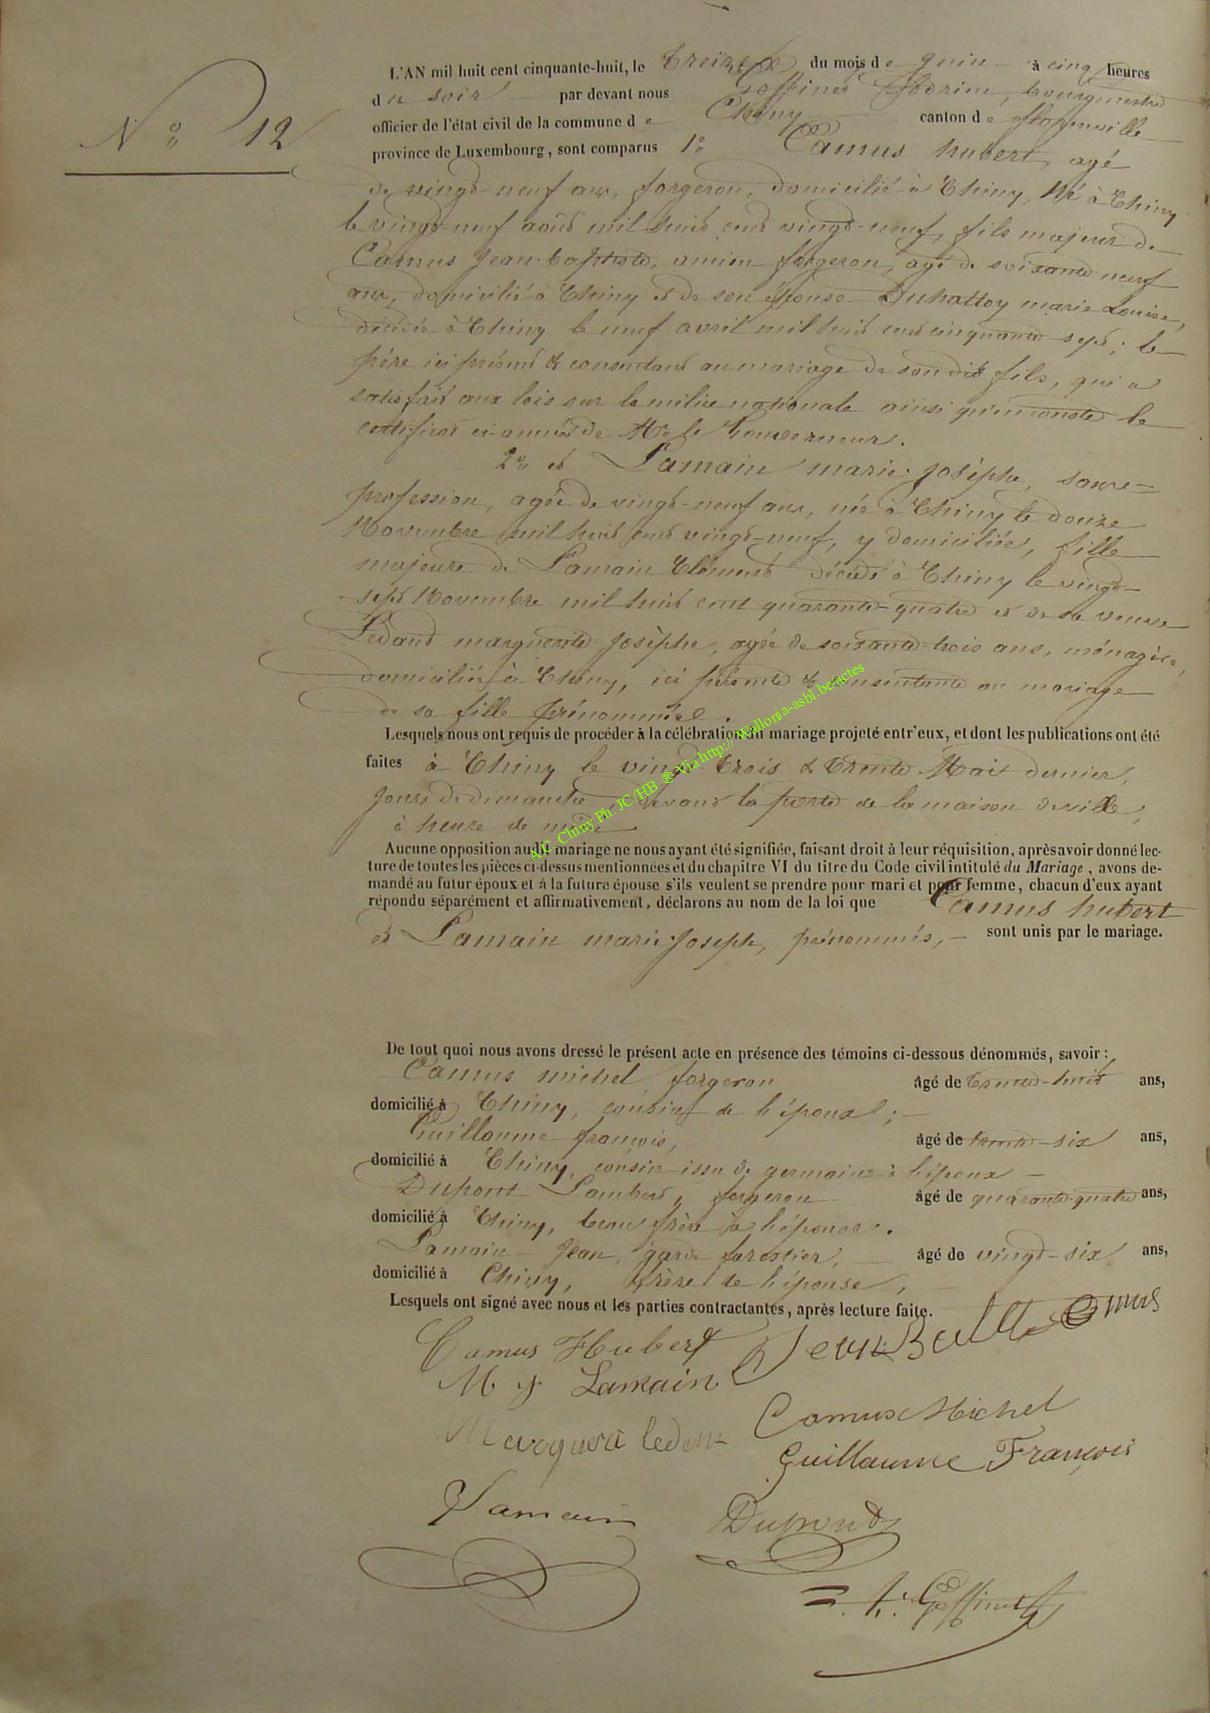 N° 12
L'AN mil huit cent cinquante-huit, le treize du mois de Juin à cinq heures
du soir par devant nous Goffinet, bourgmestre
officier de l'état civil de la commune de Chiny canton de Florenville
province de Luxembourg, sont comparus 1° Camus hubert, agé
de vingt-neuf ans, forgeron, domicilié à Chiny, Né à Chiny
le vingt-neuf août mil huit cent vingt-neuf, fils majeur de
Camus Jean-baptiste, ancien forgeron, agé de soixante neuf
ans, domicilié à Chiny et de son épouse Duhattoy marie Louise,
décédée à Chiny le neuf avril mil huit cent cinquante-sept; le
père ici présent & consentant au mariage de son dit fils, qui a
satisfait aux lois sur la milice nationale ainsi qu'en conste le
certificat ci-annexé de Mr le Gouverneur.
2° et Lamain marie-Josèphe, sans
profession, agée de vingt-neuf ans, née à Chiny le douze
Novembre mil huit cent vingt-neuf, y domiciliée, fille
majeure de Lamain Clément décédé à Chiny le vingt-
sept Novembre mil huit cent quarante-quatre et de sa veuve
Ledand marguerite-Josèphe, agée de soixante-trois ans, ménagère,
domiciliée à Chiny, ici présente & consentante au mariage
de sa fille prénommée.
Lesquels nous ont requis de procéder à la célébration du mariage projeté entr'eux, et dont les publications ont été
faites à Chiny le vingt-trois & trente Mai dernier,
jours de dimanche, devant la porte de la maison de ville,
à heure de midi
Aucune opposition audit mariage ne nous ayant été signifiée, faisant droit à leur réquisition, après avoir donné lec-
ture de toutes les pièces ci-dessus mentionnées et du chapitre VI du titre du Code civil intitulé du Mariage, avons de-
mandé au futur époux et à la future épouse s'ils veulent se prendre pour mari et pour femme, chacun d'eux ayant
répondu séparément et affirmativement, déclarons au nom de la loi que Camus hubert
et Lamain marie-Joseph, prénommés, sont unis par le mariage.
De tout quoi nous avons dressé le présent acte en présence des témoins ci-dessous dénommés, savoir:
Camus michel forgeron âgé de trente-huit ans,
domicilié à Chiny, cousin de l'époux;
Guillaume françois, âgé de trente-six ans,
domicilié à Chiny, cousin issu de germain à l'époux
Dupont Lambert, forgeron âgé de quarante-quatre ans,
domicilié à Chiny, beau frère de l'épouse.
Lamain Jean, garde forestier, âgé de vingt-six ans,
domicilié à Chiny, frère de l'épouse,
Lesquels ont signé avec nous et les parties contractantes, après lecture faite.
Camus Hubert Camus
M J Lamain
Camus Michel
Guillaume François
Lamain Dupond
Goffinet
A.C. Chiny Ph. JC/HB ® Via http://Wallonia-asbl.be/actes